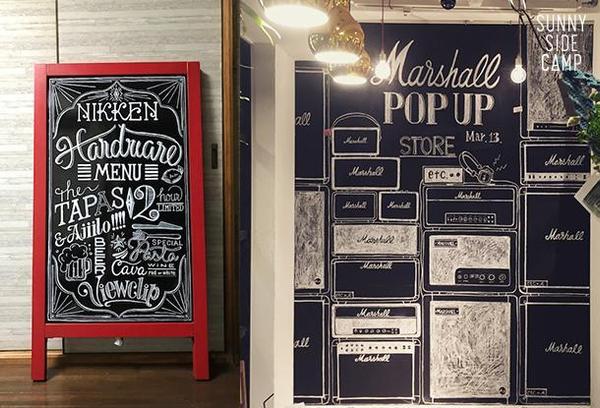 NIKKEN
Hardware
MENU
the
TAPAS
12 hour
LIMITED
& Ajillo!!!!
BEER
SPECIAL
Pasta
WINE
Cava
Viewclip
Marshall
POP UP
STORE
Mar. 13.
etc.
Marshall
Marshall
Marshall
Marshall
Marshall
Marshall
Marshall
Marshall
Marshall
Marshall
Marshall
Marshall
SUNNY
SIDE
CAMP